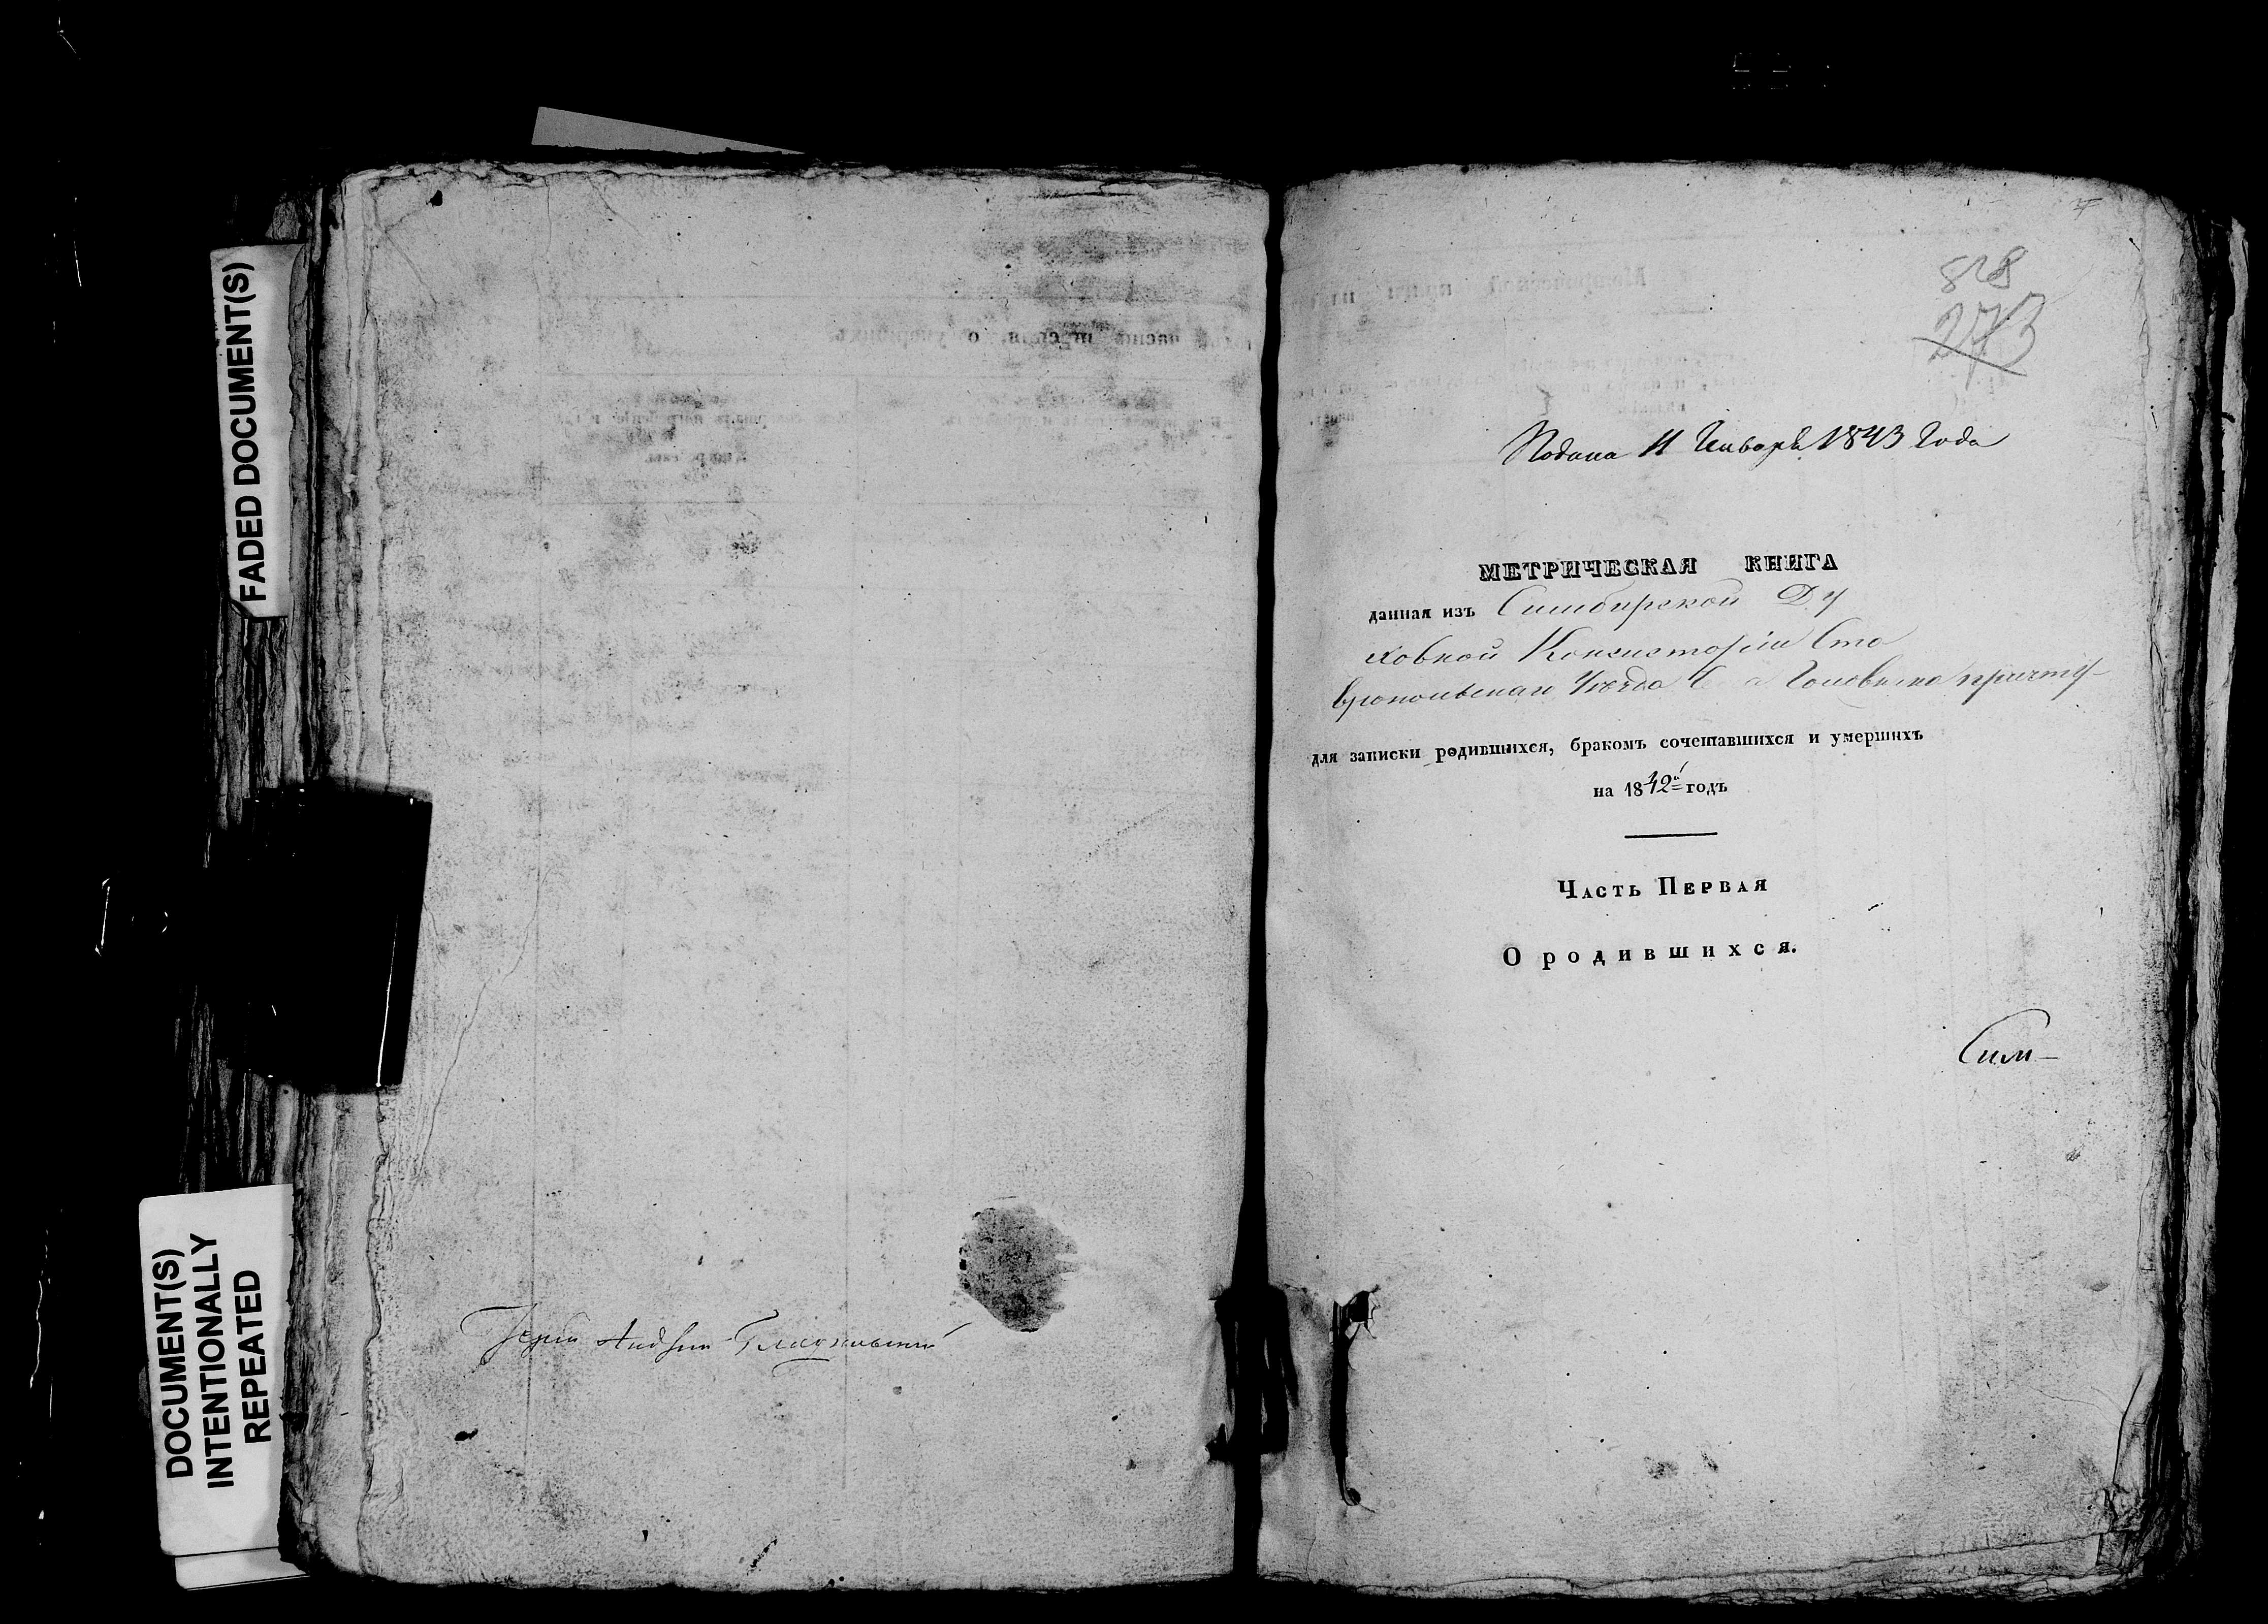 FADED DOCUMENT(S)
DOCUMENT(S)
INTENTIONALLY
REPEATED
Іерей Андрей
828
273
Подана 11 Генваря 1843 года
МЕТРИЧЕСКАЯ КНИГА
данная изъ Симбирской Ду
ховной Консисторіи Ста
вропольскаго Уѣзда причту
для записки родившихся, бракомъ сочетавшихся и умершихъ
на 1842й годъ
Часть Первая
О родившихся.
Сим-